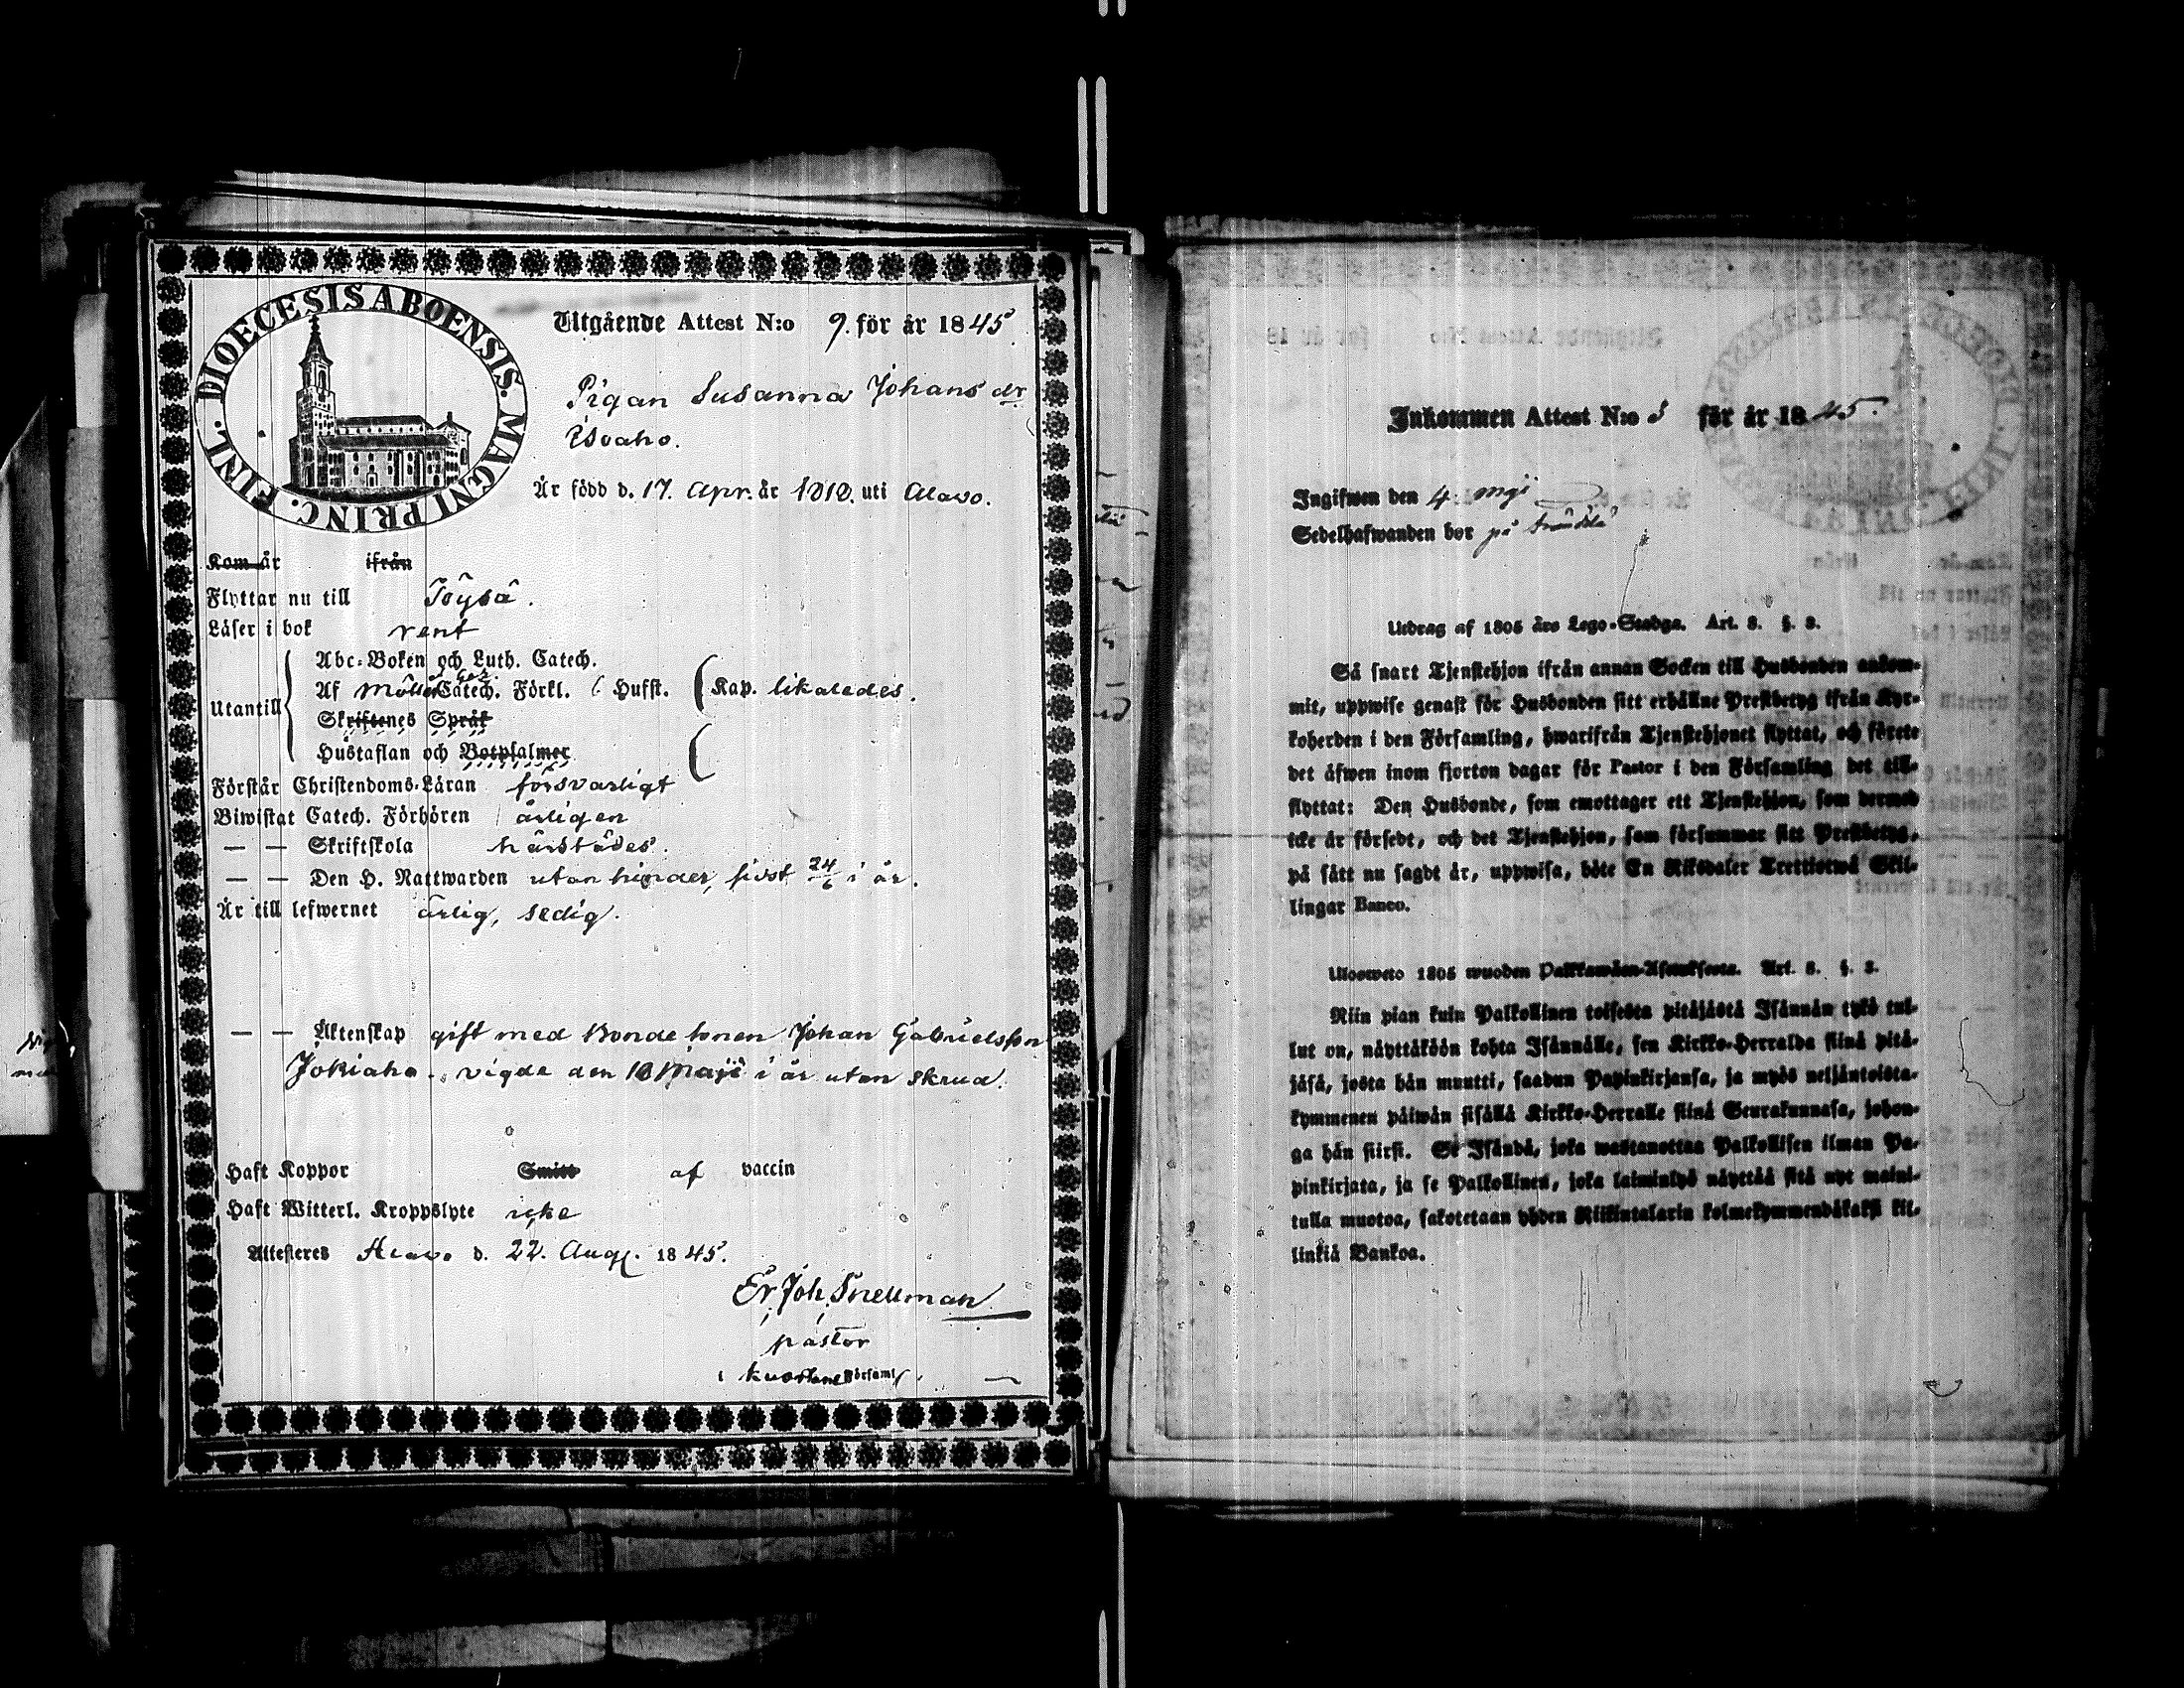 DIOECESIS ABOENSIS. MAGNI PRINC. FINL.
Utgående Attest N:o 9. för år 1845.
Pigan Susanna Johansdr
Isoaho.
Är född d. 17. Apr. år 1818. uti Alavo.
Kom år ifrån
Flyttar nu till Töysä.
Läser i bok rent
Utantill
Abc-Boken och Luth. Catech.
Af Möllers Catech. Förkl. Husst. Kap. likaledes.
Skriftenes Språk
Hustaflan och Botpsalmer
Förstår Christendoms-Läran försvarligt
Biwistat Catech. Förhören årligen
— — Skriftskola härstädes.
— — Den H. Nattwarden utan hinder, sist 24/6 i år.
Är till lefwernet ärlig, sedig.
— — Äktenskap gift med Bonde sonen Johan Gabrielsson
Jokiaho. vigde den 18 Maji i år utan skrud.
Haft Koppor Smitt af vaccin
Haft Witterl. Kroppslyte icke
Attesteres Alavo d. 22. Aug. 1845.
Er. Joh. Snellman
pastor
i Kuortane Församl.
Inkommen Attest N:o för år 1845.
Ingifwen den 4
Sedelhafwanden bor på
Utdrag af 1805 års Lego-Stadga. Art. 8. §. 8.
Så snart Tjenstehjon ifrån annan Socken till Husbonden ankom-
mit, uppwise genast för Husbonden sitt erhållne Prestbetyg ifrån Kyr-
koherden i den Församling, hwarifrån Tjenstehjonet flyttat, och förete
det äfwen inom fjorton dagar för Pastor i den Församling det till-
flyttat: Den Husbonde, som emottager ett Tjenstehjon, som dermed
icke är försedt, och det Tjenstehjon, som försummar sitt Prestbetyg,
på sätt nu sagdt är, uppwisa, böte En Riksdaler Trettiotwå Skil-
lingar Banco.
Ulosweto 1805 wuoden Palkkawäen-Asetuksesta. Art. 8. §. 8.
Niin pian kuin Palkollinen toisesta pitäjästä Isännän tykö tul-
lut on, näyttäköön kohta Isännälle, sen Kirkko-Herralda siinä pitä-
jäsä, josta hän muutti, saadun Papinkirjansa, ja myös neljäntoista-
kymmenen päiwän sisällä Kirkko-Herralle siinä Seurakunnasa, johon-
ga hän siirsi. Se Isändä, joka wastanottaa Palkollisen ilman Pa-
pinkirjata, ja se Palkollinen, joka laiminlyö näyttää sitä nyt maini-
tulla muotoa, sakotetaan yhden Riikintalarin kolmekymmendäkaksi kil-
linkiä Bankoa.